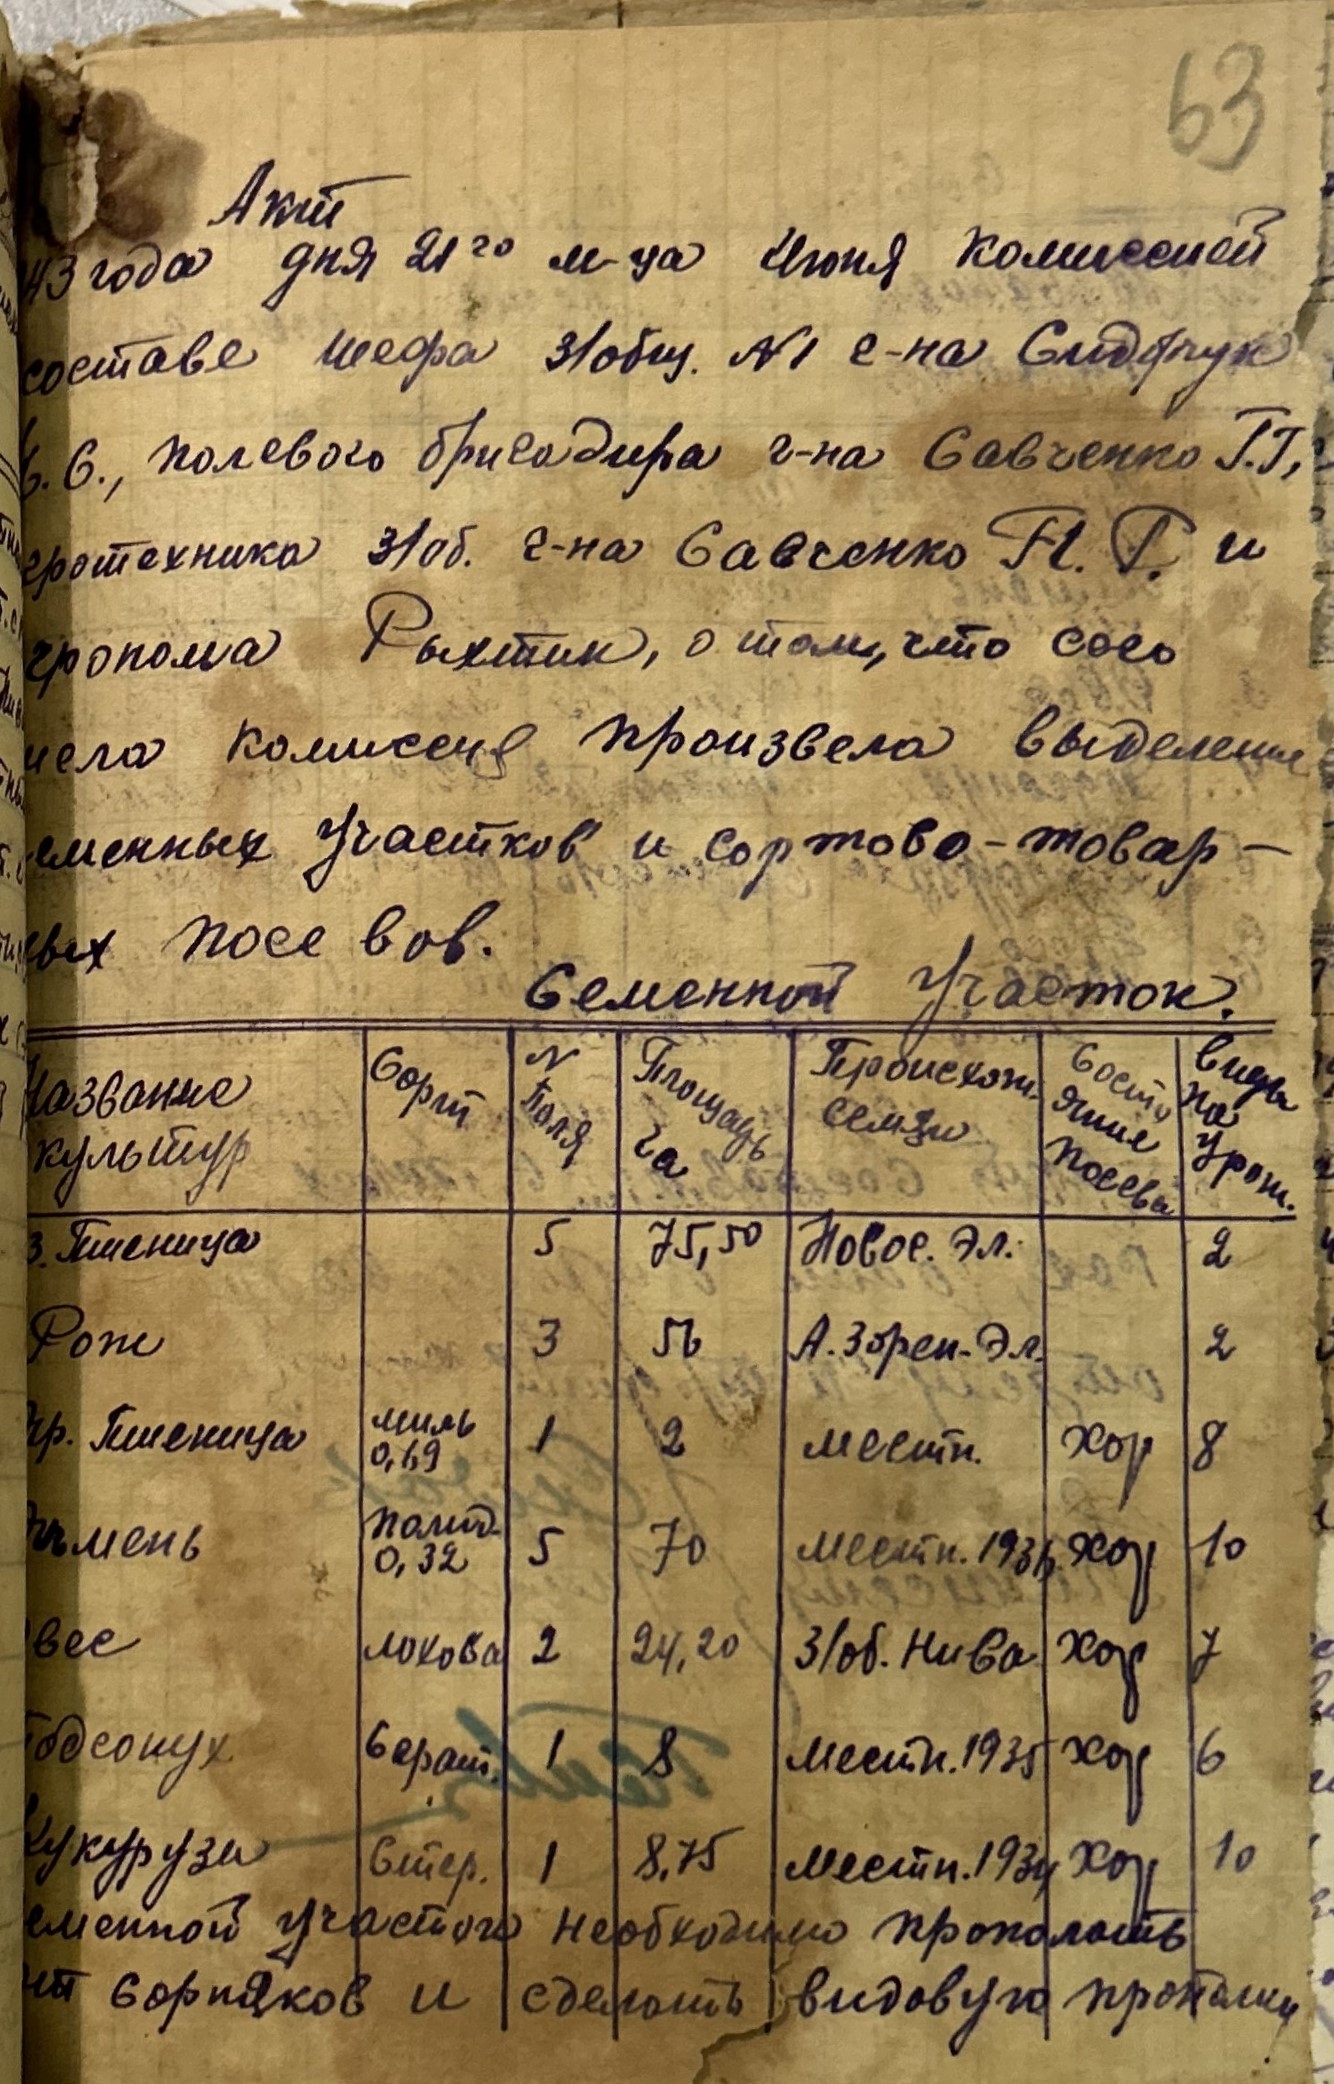 63
Акт
43 года дня 21го м-ца Июня комиссией
составе шефа з/общ. №1 г-на
С., полевого бригадира г-на Савченко Г.Г.,
гротехника з/об. г-на Савченко П. Г. и
гронома Рыхтик, о том, что сего
чела комиссия произвела выделение
еменных участков и сортово-товар-
ых посевов.
Семенной участок.
Название культур | Сорт | N поля | Площадь га | Происхож. семян | Состояние посева | Виды на урож.
з. Пшеница | | 5 | 75,50 | Новос. Эл. | | 2
Рож | | 3 | 56 | А. Зорен. Эл. | | 2
яр. Пшеница | миль 0,69 | 1 | 2 | местн. | хор | 8
чмень | палид. 0,32 | 5 | 70 | местн. 1936 | хор | 10
вес | лохова | 2 | 24,20 | З/об. Нива | хор | 7
Подсонух | Сарат. | 1 | 8 | местн. 1935 | хор | 6
Кукурузы | Стер. | 1 | 8,75 | местн. 1934 | хор | 10
еменной участок необходимо прополоть
от сорняков и сделать видовую прополку